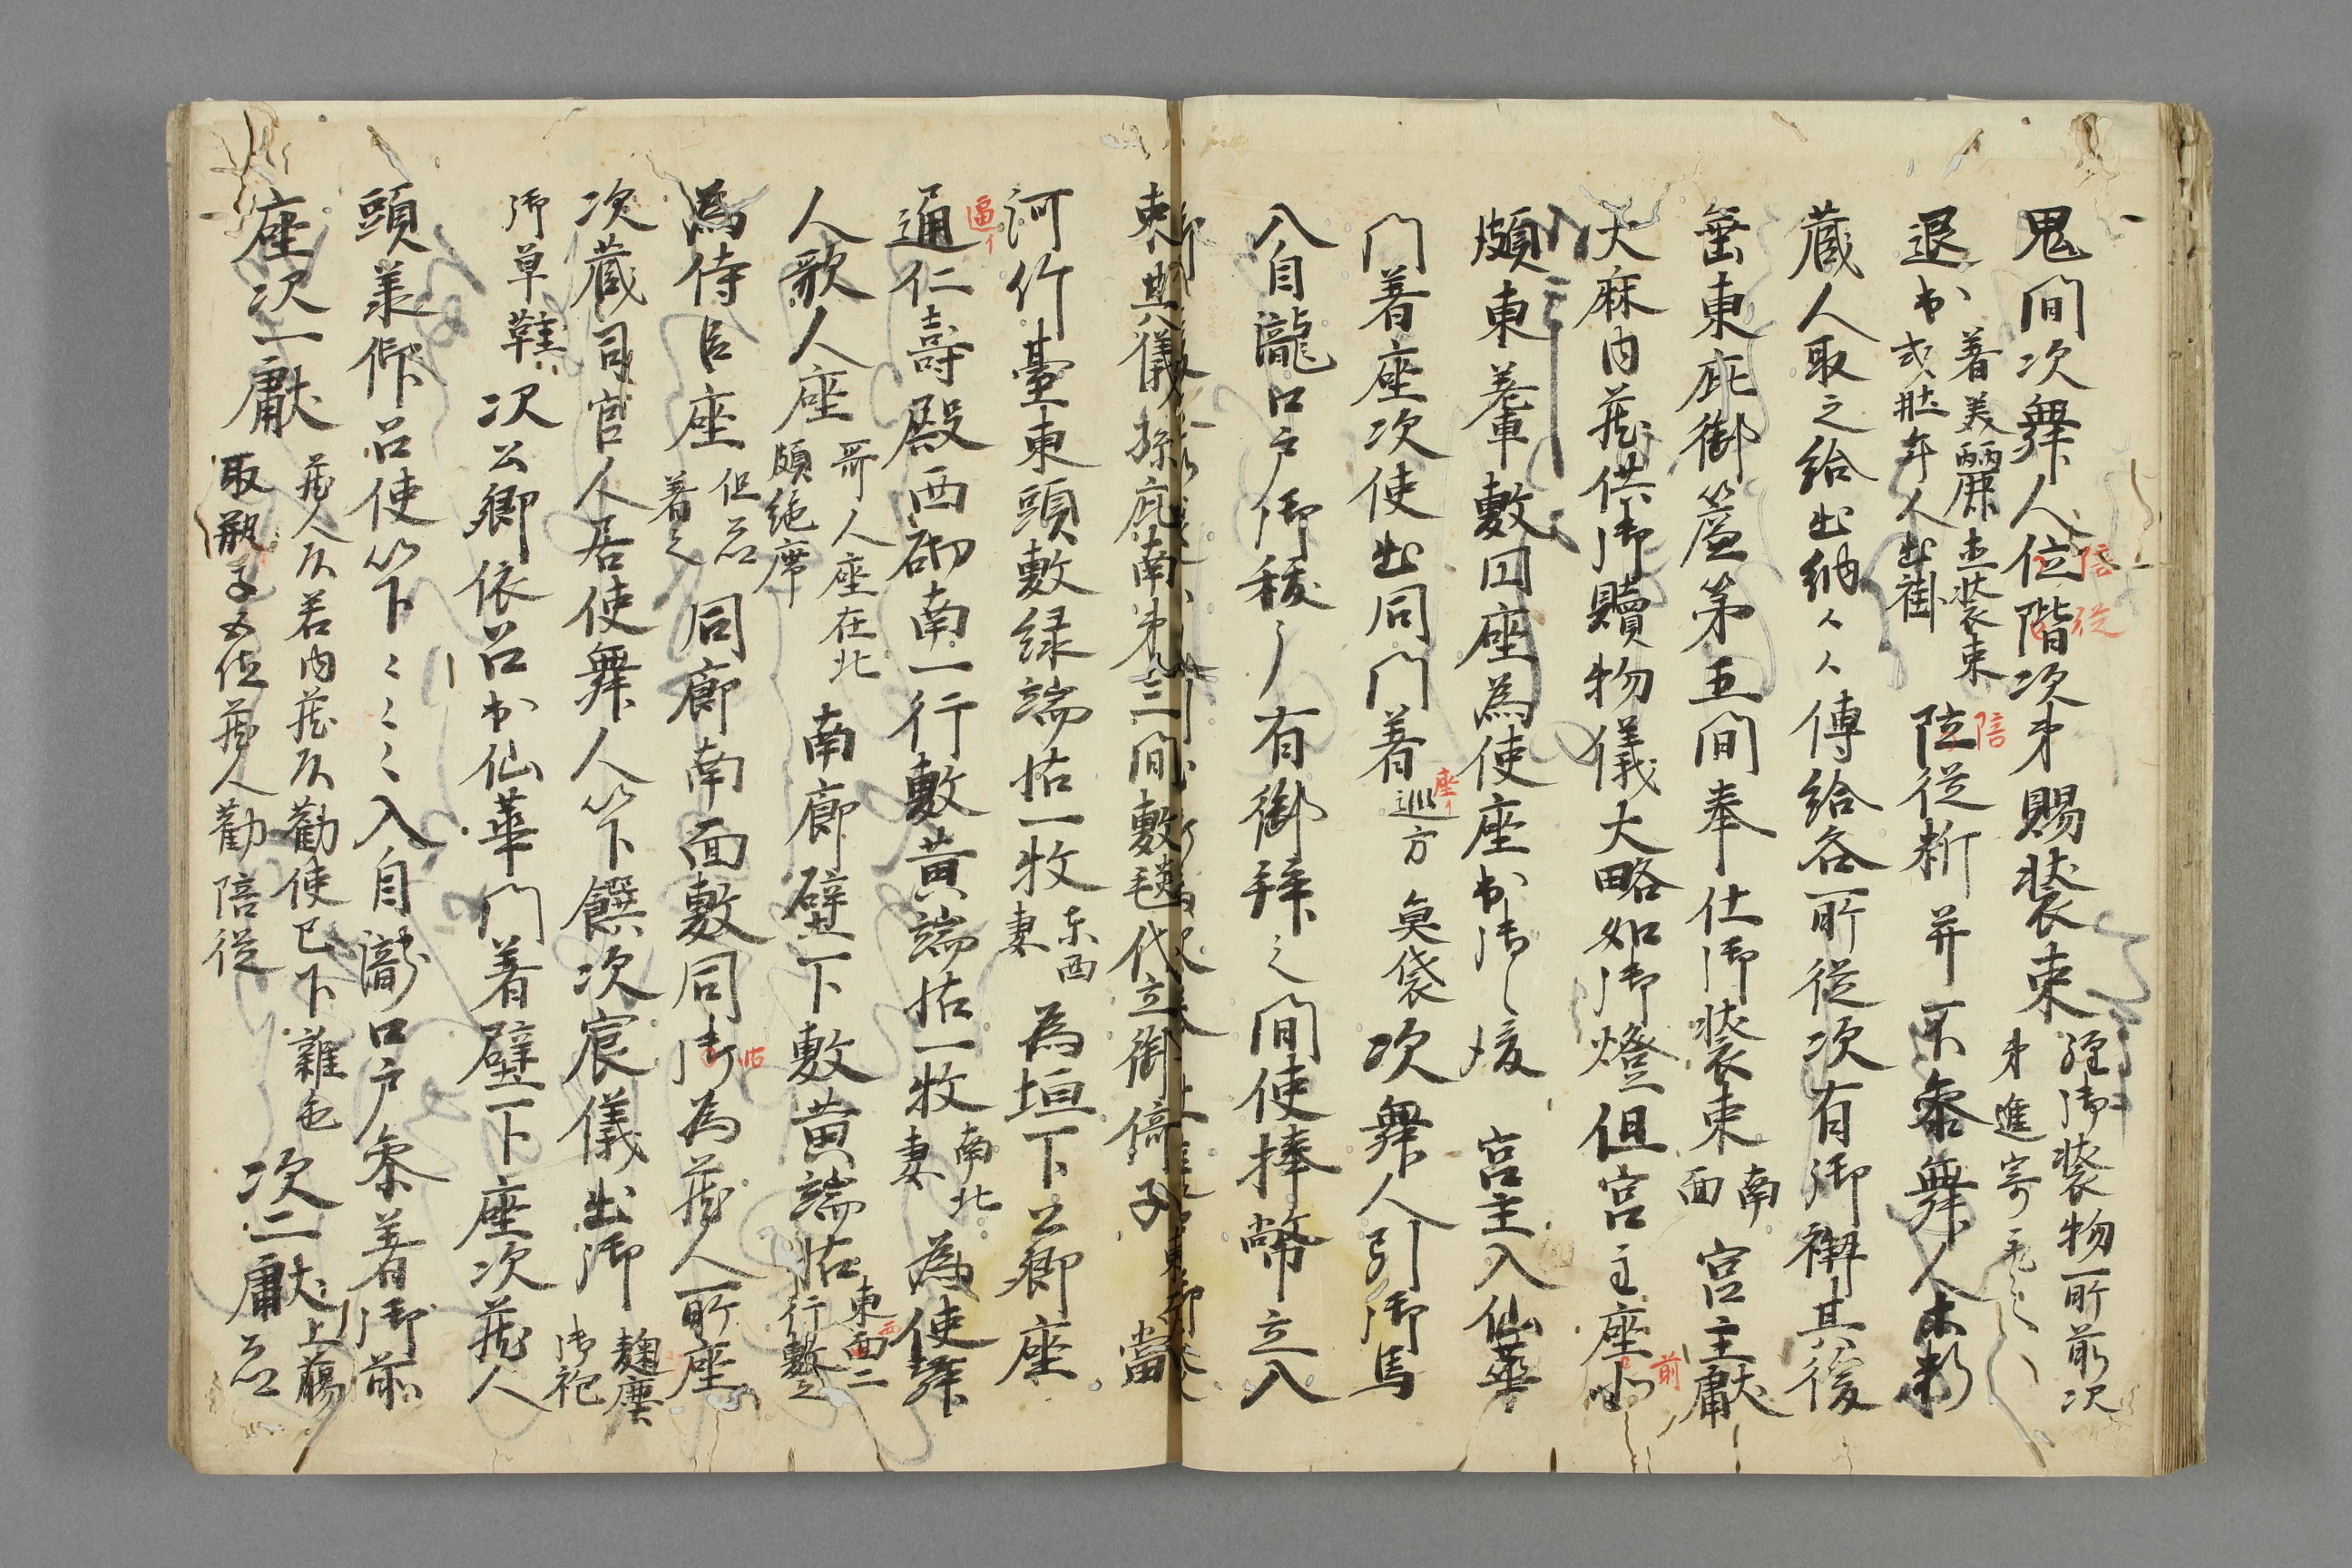 鬼間次舞人位階次第賜装束
陪
従
経御装物所前次
第進寄
退出
着美麗
装束
或
年人出褂
陪従料并不参舞人
陪
蔵人取之給出納々々傳給各所従次有御禊其後
垂東庇御簾第五間奉仕御装束
南
面
宮主獻
大麻内蔵供御贖物儀大略如御燈但宮主座
前
頗東
敷円座為使座出御
宮主入仙華
門着座次使出同門着
座イ
巡方
魚袋
次舞人引御馬
入自瀧口戸御禊了有御拜之間使捧幣立入
束其儀孫庇南第三間敷毯代立御倚子
當
河竹臺東頭敷緑端帖一枚
東西
妻
為垣下公卿座
通仁壽殿西砌南一行敷黄端帖一枚
逼イ
南北
妻
為使舞
人歌人座
哥人座在北
頗絶席
南廊壁下敷黄端帖
東面二
行敷之
西
為侍臣座
但
着之
同廊南面敷同
帖
為蔵人所座
次蔵司官人居使舞人以下饌次宸儀出御
麹塵
御袍
御草鞋
次公卿依召出仙華門着壁下座次蔵人
頭奉仰召使以下々々々入自瀧口戸参着御前
座次一獻
蔵人頭若内蔵頭勧使已下雜色
取瓶子五位蔵人勧陪従
次二獻
上﨟